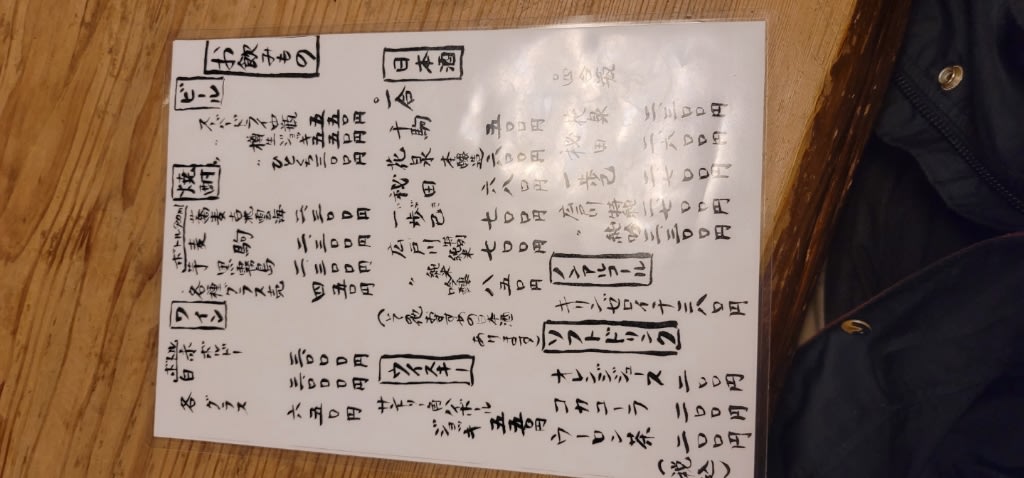 お飲みもの
ビール
スーパードライ中瓶 五五〇円
〃 樽生ジョッキ 五五〇円
〃 ひとくち 三〇〇円
焼酎
ボトル(720ml)
蕎麦 吉兆雲海 二六三〇〇円
麦 駒 二三〇〇円
芋 黒霧島 二三〇〇円
各種グラス売 四五〇円
ワイン
ボトル
赤 ボルドー 三〇〇〇円
白 三〇〇〇円
各 グラス 六五〇円
日本酒
一合
千駒 五〇〇円
花泉 本醸造 六〇〇円
秘田 六八〇円
一歩己 七〇〇円
広戸川 特別純米 七〇〇円
〃 純米吟醸 八五〇円
おすすめの日本酒
あります
ウイスキー
サントリー角ハイボール
ジョッキ 五五〇円
四合瓶
花泉 二三〇〇円
秘田 二六〇〇円
一歩己 二七〇〇円
広戸川 特純 二七〇〇円
〃 純吟 三三〇〇円
ノンアルコール
キリンゼロイチ 三八〇円
ソフトドリンク
オレンジジュース 二〇〇円
コカコーラ 二〇〇円
ウーロン茶 二〇〇円
(税込)